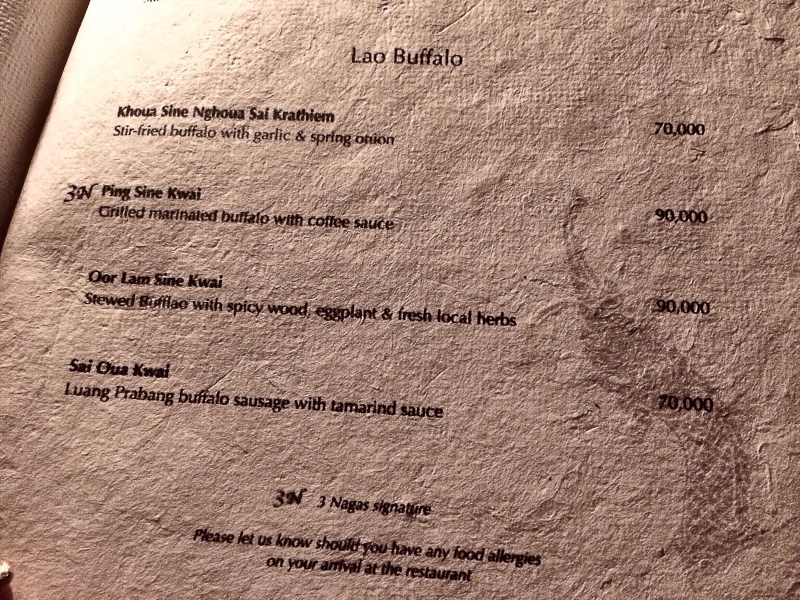 Lao Buffalo
Khoua Sine Nghoua Sai Krathiem
Stir-fried buffalo with garlic & spring onion
70,000
3N Ping Sine Kwai
Grilled marinated buffalo with coffee sauce
90,000
Oor Lam Sine Kwai
Stewed Bufflao with spicy wood, eggplant & fresh local herbs
90,000
Sai Oua Kwai
Luang Prabang buffalo sausage with tamarind sauce
70,000
3N 3 Nagas signature
Please let us know should you have any food allergies
on your arrival at the restaurant